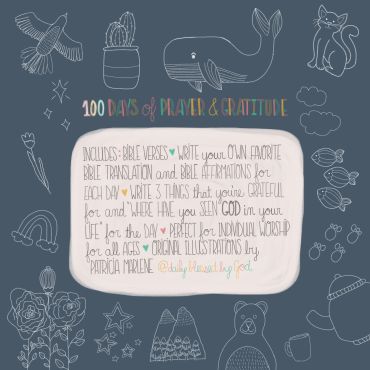 100 DAYS of PRAYER & GRATITUDE
INCLUDES: BIBLE VERSES ♥ WRITE your OWN FAVORITE
BIBLE TRANSLATION and BIBLE AFFIRMATIONS for
EACH DAY ♥ WRITE 3 THINGS that you're GRATEFUL
for and "WHERE HAVE you SEEN GOD in your
LIFE" for the DAY ♥ PERFECT for INDIVIDUAL WORSHIP
for all AGES ♥ ORIGINAL ILLUSTRATIONS by
PATRICIA MARLENE @dailyblessedbyGod